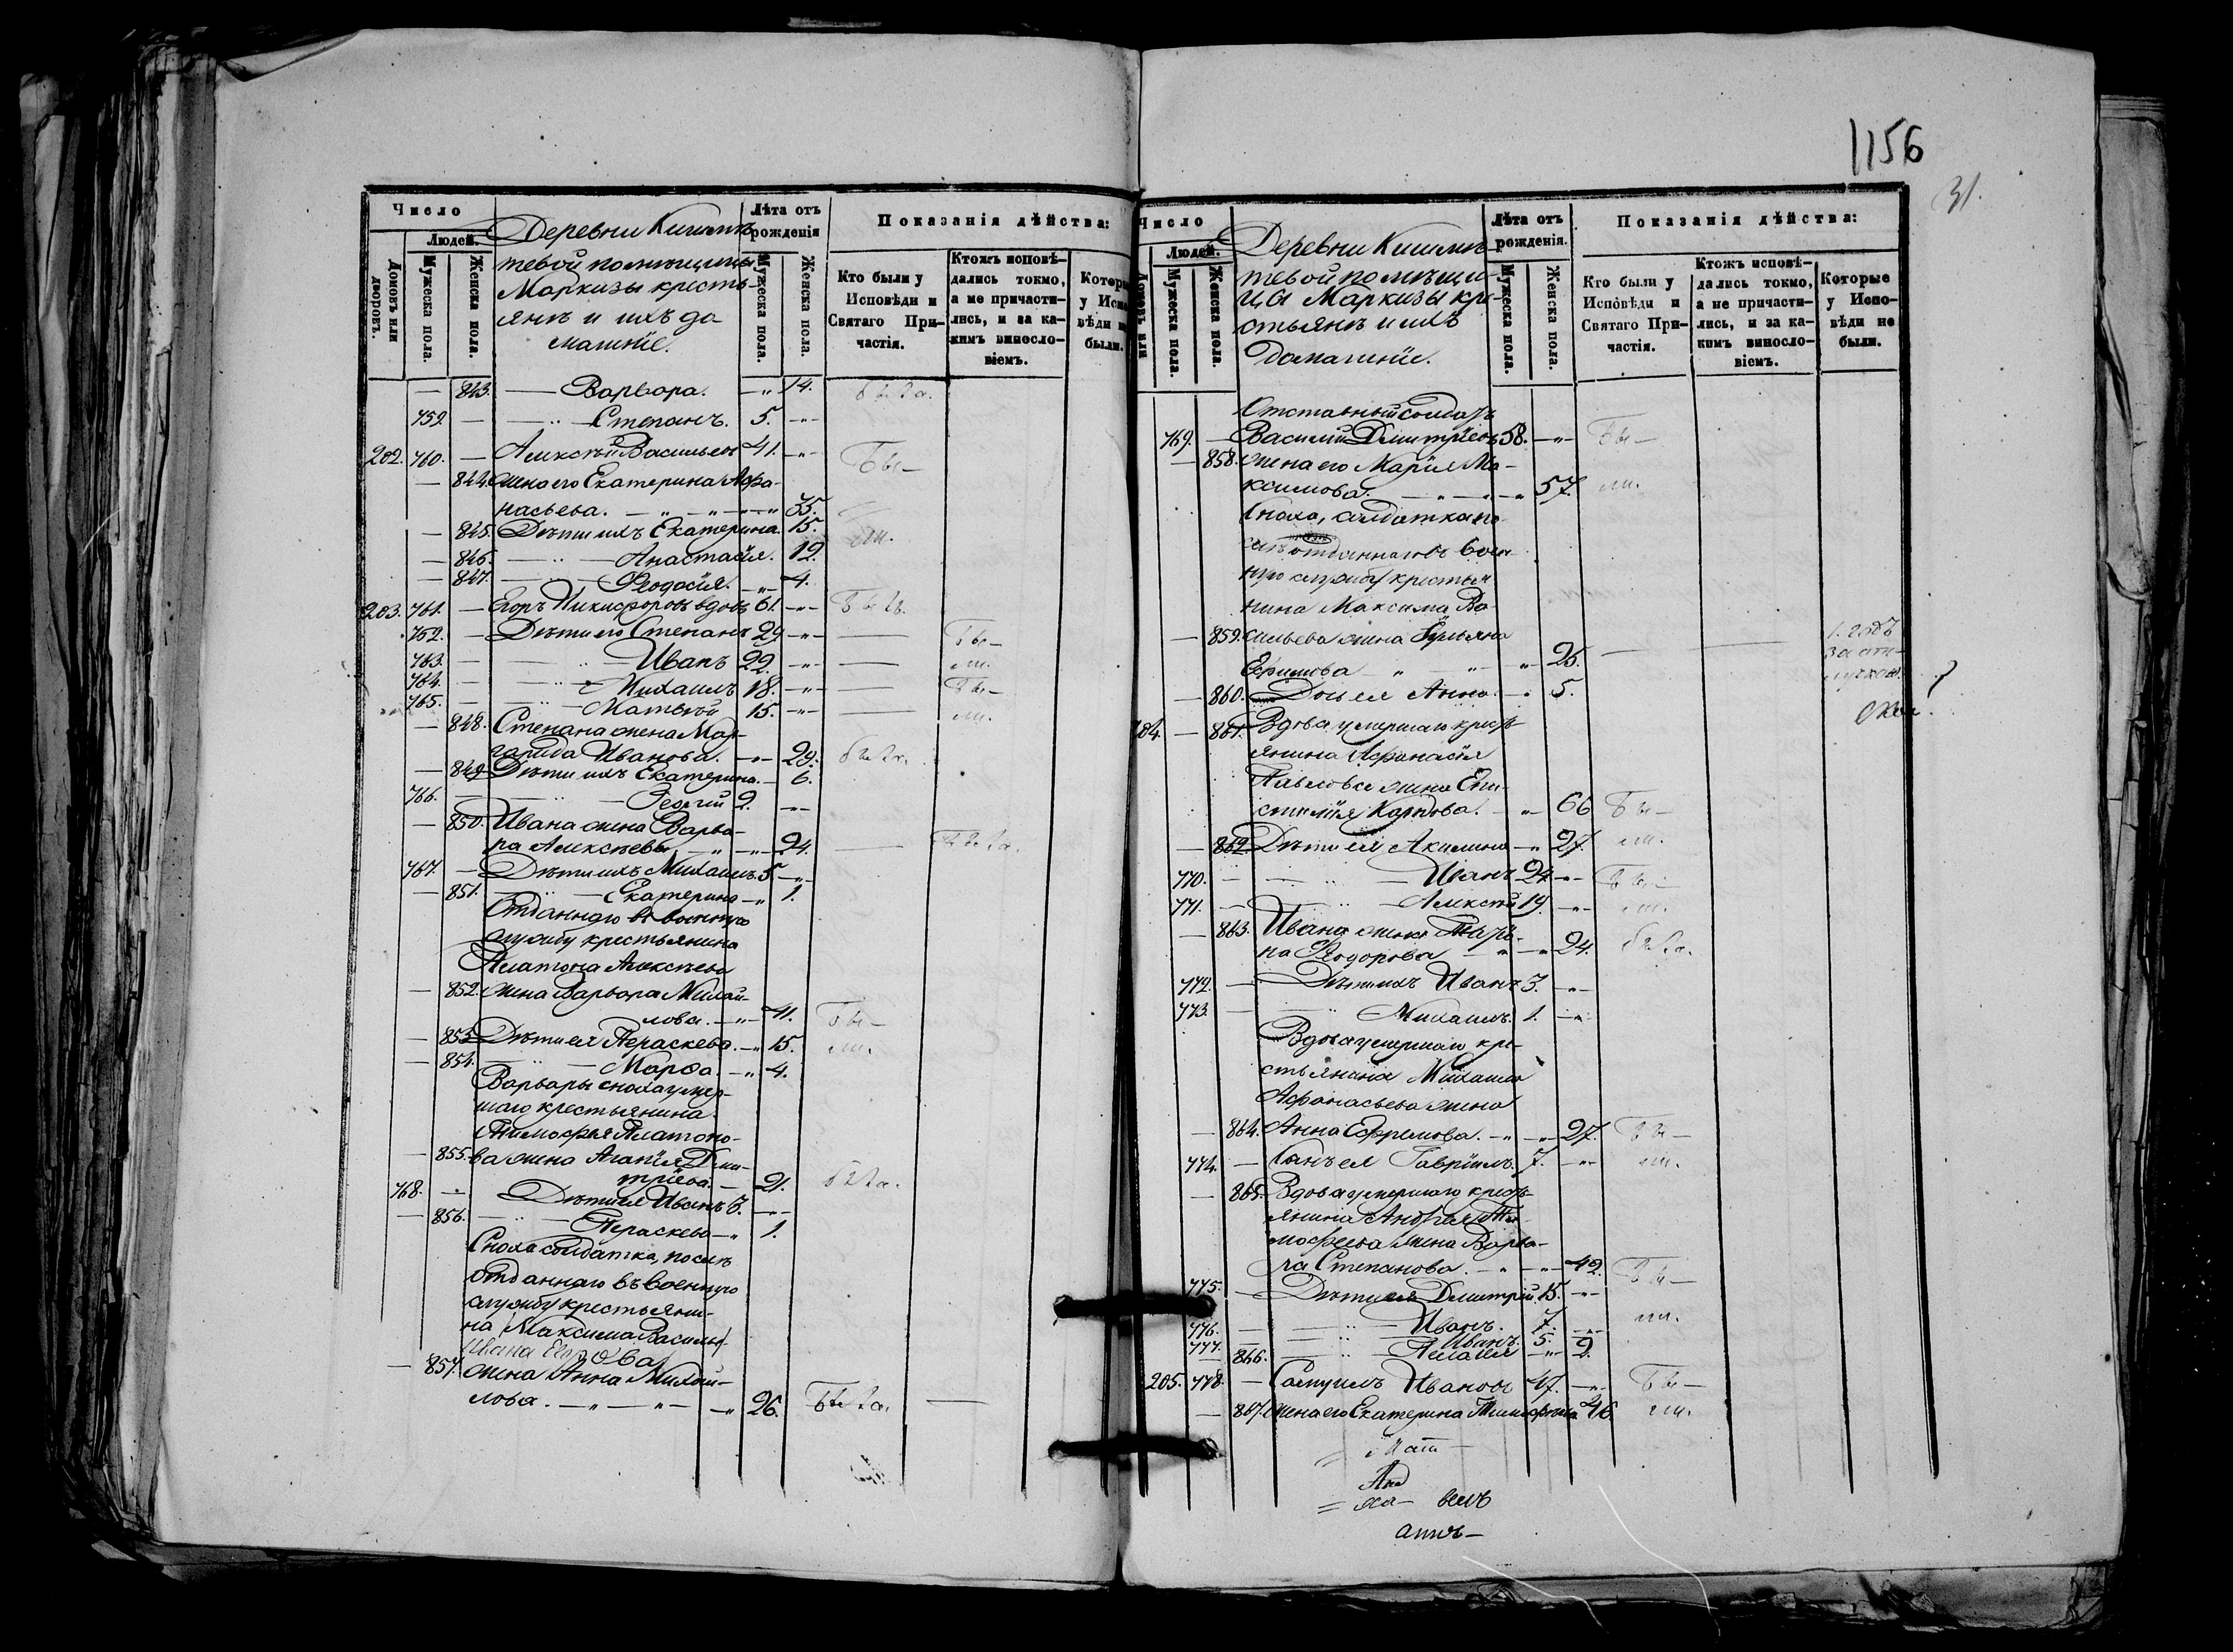 1156
31.
Число
Людей.
Домовъ или дворовъ.
Мужеска пола.
Женска пола.
Деревни
тевой помѣщицы
Маркизы кресть-
янъ и ихъ до
машніе.
Лѣта отъ рожденія
Мужеска пола.
Женска пола.
Показанія дѣйства:
Кто были у Исповѣди и Святаго При-частія.
Ктожъ исповѣ-дались токмо, а не причасти-лись, и за ка-кимъ винословіемъ.
Которы у Испо вѣди не были.
— 843. — Варвара. — „ 14. была.
759. — — „ — Степанъ. 5. — „ —
202. 760. — Алексѣй Васильевъ 41. — „ — Бы—
— 844. жена его Екатерина Афа-
насьева. — „ — „ — „ — „ 35.
— 845. Дѣти ихъ Екатерина. 15. ли.
— 846. — „ — Анастасія. 12.
— 847. — Ѳеодосія. — „ — 4.
203. 761. — Егоръ Никифоровъ вдовъ 61. — „ — Былъ.
762. — Дѣти его Степанъ 29 — „ — — Бы—
763. — — „ — Иванъ 22. — „ — — ли.
764. — — „ — Михаилъ 18. — „ — — Бы—
765. — — „ — Матвѣй 15. — „ — — ли.
— 848. Степана жена Мар-
гарида Иванова. — „ — 29. была.
— 849. Дѣти ихъ Екатерина. — 6.
766. — — „ — Георгій 2. — „ —
— 850. Ивана жена Варва-
ра Алексѣева — „ — „ — 24. — Была.
767. — Дѣти ихъ Михаилъ. 5 — „ —
— 851. — „ — Екатерина — „ 1.
Отданнаго въ военную
службу крестьянина
Платона Алексѣева
— 852. жена Варвара Михай-
лова. — „ — 41. Бы—
— 853. Дѣти ея Параскева. — „ 15. ли.
— 854. — „ — Марѳа. — „ 4.
Варвары сноха умер-
шаго крестьянина
Тимофея Платоно-
— 855. ва жена Агапія Дми-
тріева. — 21. была.
768. — Дѣти ея Иванъ 3. — „ —
— 856. — „ — Параскева — „ 1.
Сноха солдатка, послѣ
отданнаго въ военную
службу крестьяни-
на Максима Василье
Ивана Егорова
— 857. жена Анна Михай-
лова. — „ — „ — — „ 26. Была. —
Число
Людей.
Домовъ или
Мужеска пола.
Женска пола.
Деревни
тевой помѣщи-
цы Маркизы кре-
стьянъ и ихъ
домашніе.
Лѣта отъ рожденія.
Мужеска пола.
Женска пола.
Показанія дѣйства:
Кто были у Исповѣди и Святаго При-частія.
Ктожъ исповѣ-дались токмо, а не причасти-лись, и за ка-кимъ винословіемъ.
Которые у Испо-вѣди не были.
Отставный солдатъ
769. — Василій Дмитріевъ 58. — „ — Бы—
— 858. жена его Марія Ма-
ксимова. — „ — „ — „ 57. ли.
Сноха, солдатка по
слѣ отданнаго въ воен
ную службу крестья
нина Максима Ва-
— 859. сильева жена Ульяна
Ефимова „ „ — „ 25. — — 1. годъ за отлучкою.
— 860. Дочь ея Анна. — „ 5.
204. — 861. Вдова умершаго крест-
янина Афанасія
Павлова жена Ев-
Карпова. — „ 66 Бы—
— 862. Дѣти ея Акилина — „ 27. ли.
770. — — „ — Иванъ 24 — „ — Бы—
771. — — „ — Алексѣй 19. — „ — ли.
— 863. Ивана жена Марі-
на Ѳеодорова — „ — „ 24. была.
772. — Дѣти ихъ Иванъ 3. — „ —
773. — „ Михаилъ. 1. — „ —
Вдова умершаго кре-
стьянина Михаила
Афанасьева жена
— 864. Анна Ефремова. — „ — „ — 27. Бы—
774. — Сынъ ея Гавріилъ. 7. — „ — ли.
— 865. Вдова умершаго крест-
янина Андрея Ти-
мофеева жена Варва-
ра Степанова. — „ — „ — 42. Бы—
775. — Дѣти ея Дмитрій. 15. — „ —
776. — — „ — Иванъ. 7. — „ — ли.
777. — — „ — Иванъ. 5. „
— 866. — „ — Пелагія — „ — 2.
205. 778. — Самуилъ Ивановъ 47. — „ — Бы—
— 867. жена его Екатерина Тимофѣева 46. ли.